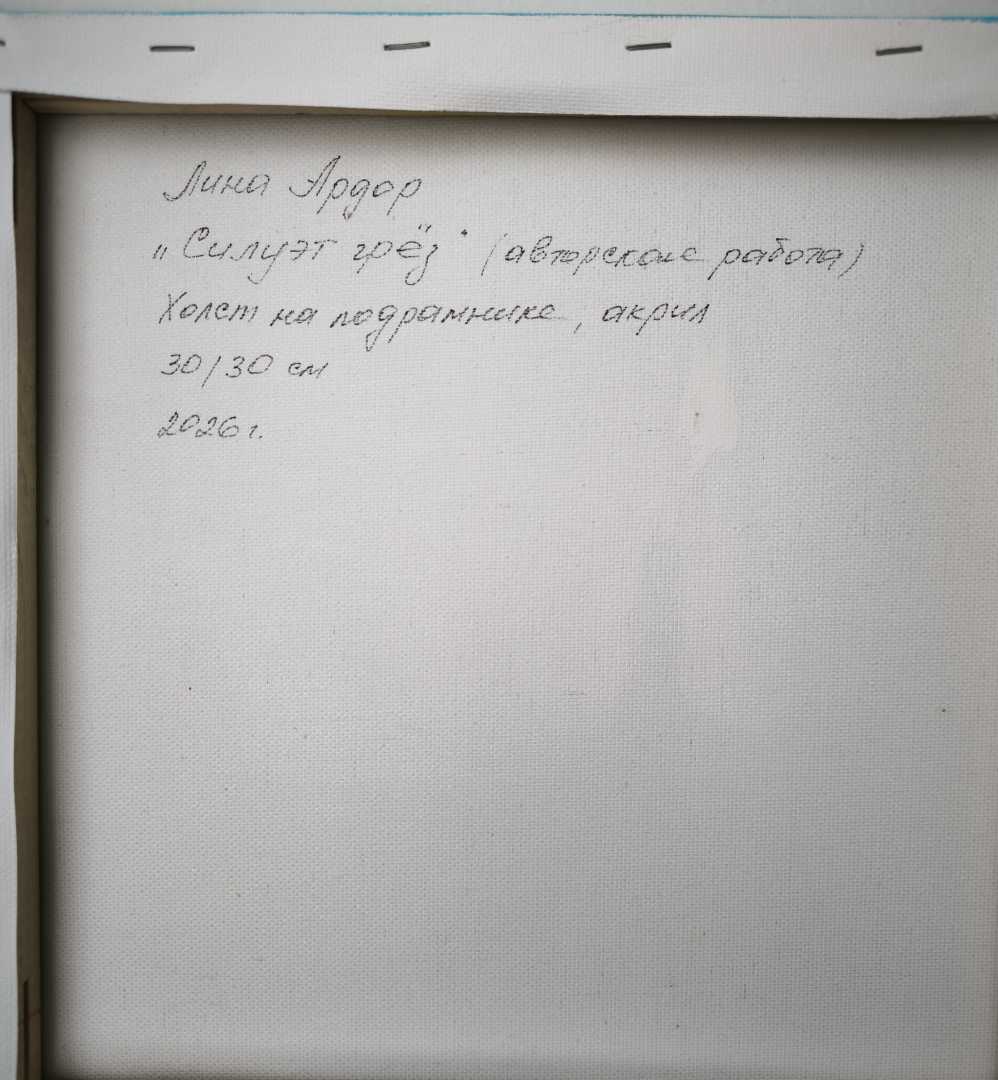 Лина Ардор
„Силуэт грёз" (авторская работа)
Холст на подрамнике, акрил
30/30 см
2026 г.